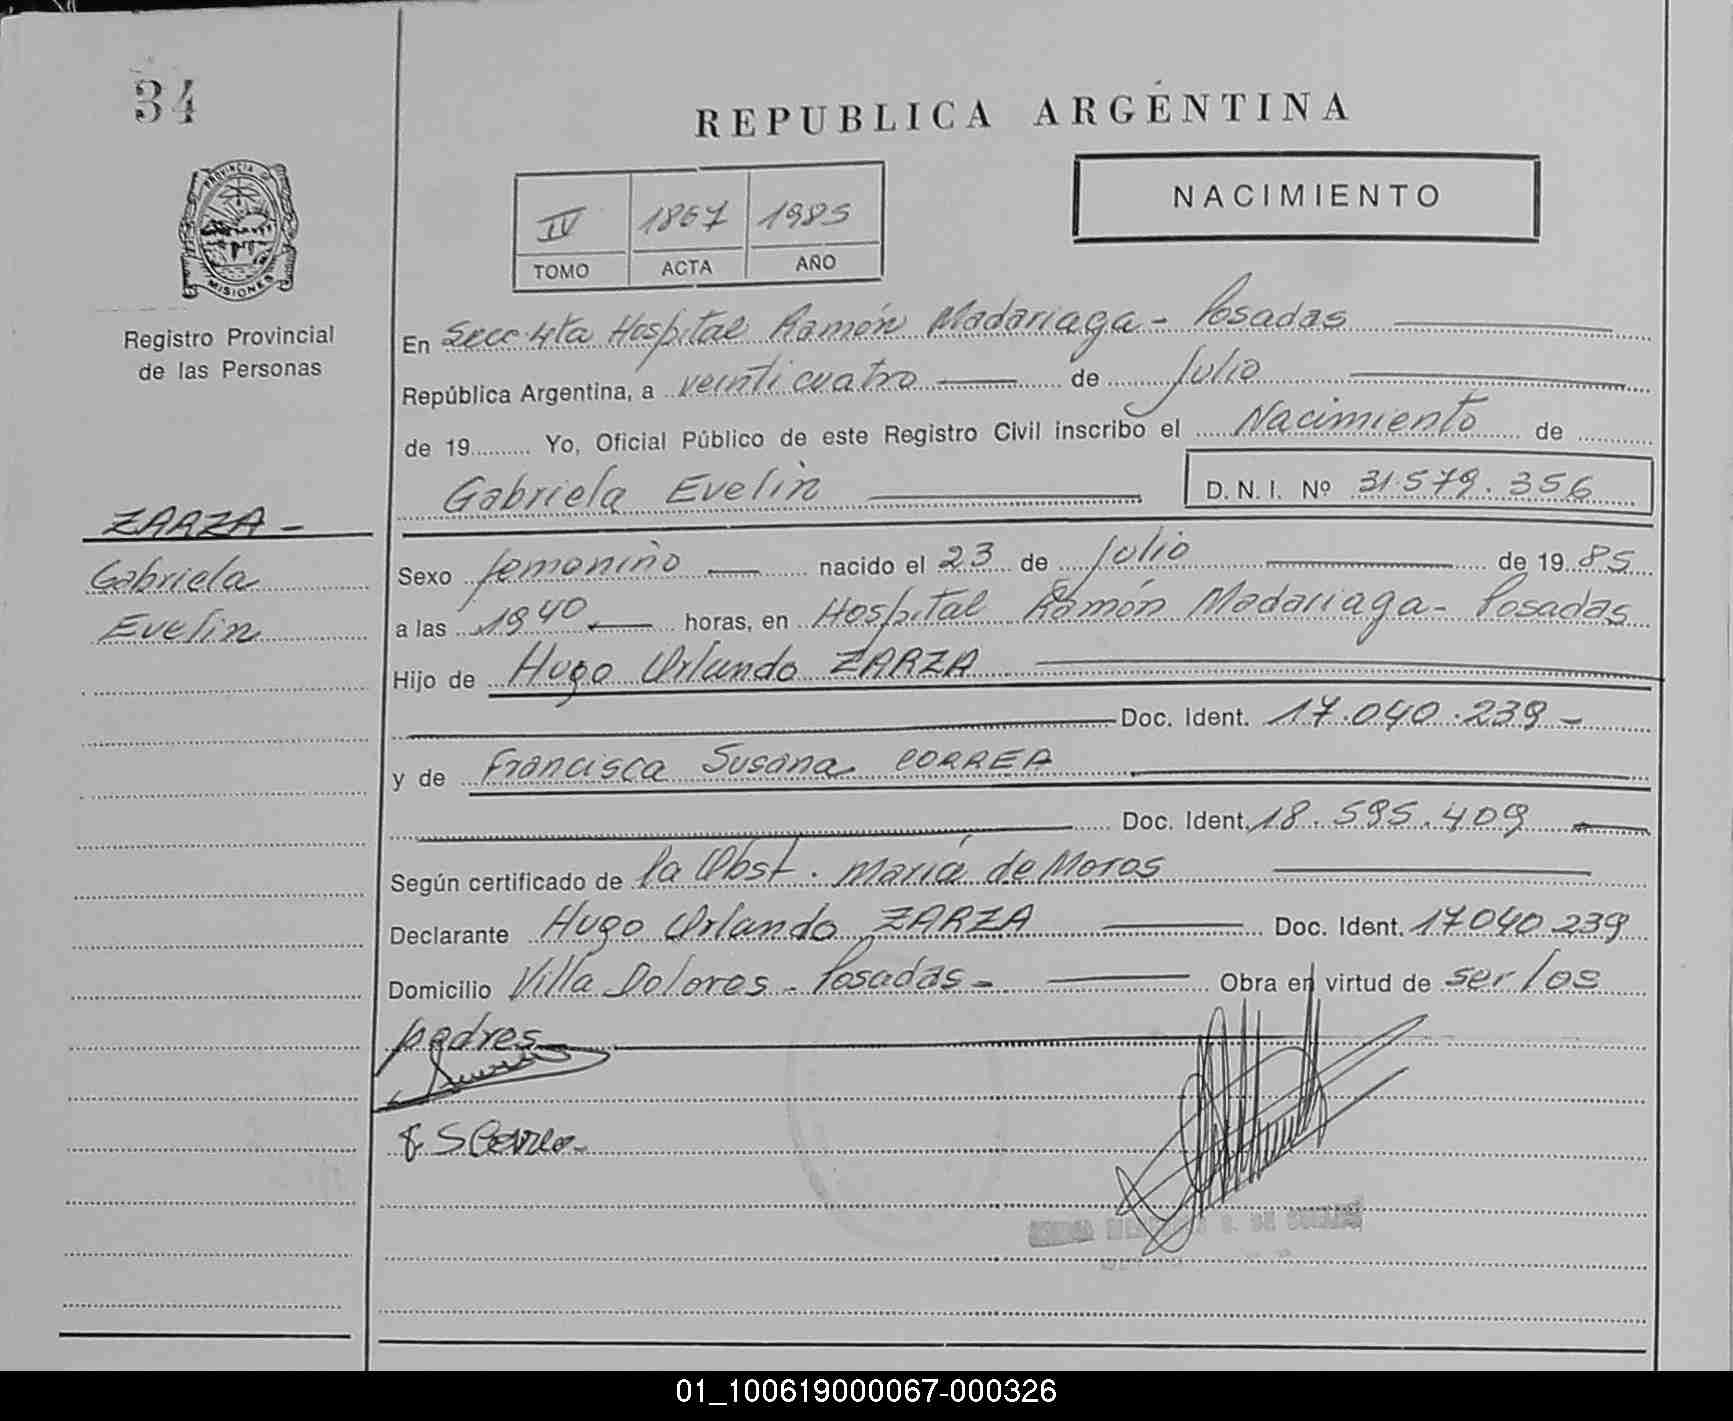 34
REPUBLICA ARGENTINA
NACIMIENTO
IV 1867 1985
TOMO ACTA AÑO
PROVINCIA DE
MISIONES
Registro Provincial
de las Personas
ZARZA -
Gabriela
Evelin
En Secc. 4ta Hospital Ramón Madariaga - Posadas
República Argentina, a veinticuatro de Julio
de 19 Yo, Oficial Público de este Registro Civil inscribo el Nacimiento de
Gabriela Evelin D.N.I. Nº 31.579.356
Sexo femenino nacido el 23 de Julio de 1985
a las 1940 horas, en Hospital Ramón Madariaga - Posadas
Hijo de Hugo Orlando ZARZA
Doc. Ident. 17.040.239 -
y de Francisca Susana CORREA
Doc. Ident. 18.595.409
Según certificado de la Obst. María de Moros
Declarante Hugo Orlando ZARZA Doc. Ident. 17040239
Domicilio Villa Dolores - Posadas - Obra en virtud de ser los
padres
01_100619000067-000326